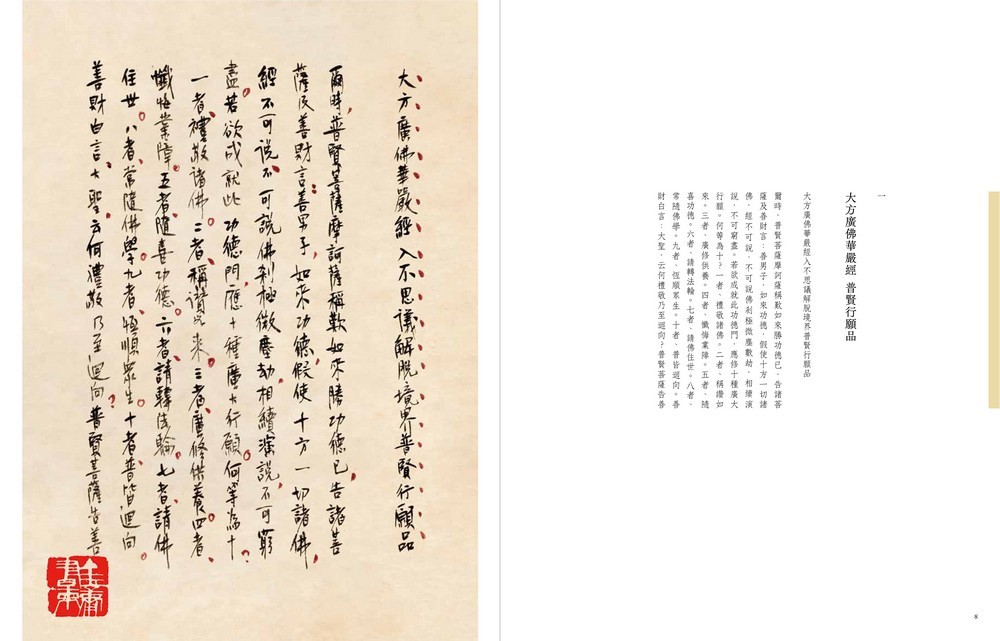 一
大方廣佛華嚴經 普賢行願品
大方廣佛華嚴經入不思議解脫境界普賢行願品
爾時,普賢菩薩摩訶薩稱歎如來勝功德已,告諸菩
薩及善財言:善男子,如來功德,假使十方一切諸
佛,經不可說、不可說佛剎極微塵數劫,相續演
說,不可窮盡。若欲成就此功德門,應修十種廣大
行願。何等為十?一者、禮敬諸佛。二者、稱讚如
來。三者、廣修供養。四者、懺悔業障。五者、隨
喜功德。六者、請轉法輪。七者、請佛住世。八者、
常隨佛學。九者、恆順眾生。十者、普皆迴向。善
財白言:大聖,云何禮敬乃至迴向?普賢菩薩告善
8
大方廣佛華嚴經入不思議解脫境界普賢行願品
爾時,普賢菩薩摩訶薩稱歎如來勝功德已,告諸菩
薩及善財言:善男子,如來功德,假使十方一切諸佛,
經不可說、不可說佛剎極微塵劫相續演說,不可窮
盡。若欲成就此功德門,應十種廣大行願。何等為十?
一者、禮敬諸佛。二者、稱讚如來。三者、廣修供養。四者、
懺悔業障。五者、隨喜功德。六者、請轉法輪。七者、請佛
住世。八者、常隨佛學。九者、恆順眾生。十者、普皆迴向。
善財白言:大聖,云何禮敬乃至迴向?普賢菩薩告善